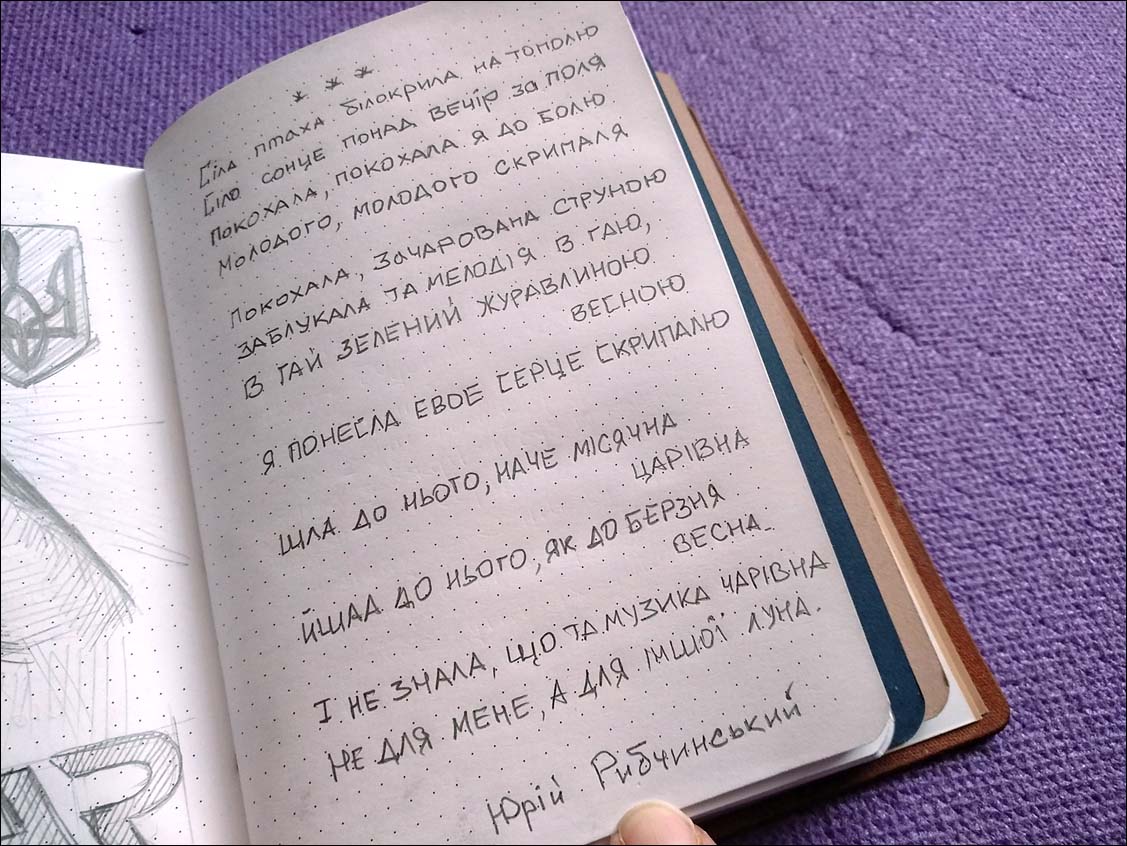 * * *
Сіла птаха білокрила на тополю
Сіло сонце понад вечір за поля
Покохала, покохала я до болю
Молодого, молодого скрипаля
Покохала, зачарована струною
Заблукала та мелодія в гаю,
В гай зелений журавлиною
весною
Я понесла євоє серце скрипалю
Шла до нього, наче місячна
царівна
Йшла до нього, як до березня
весна..
І не знала, що та музика чарівна
Не для мене, а для іншої луна.
Юрій Рибчинський